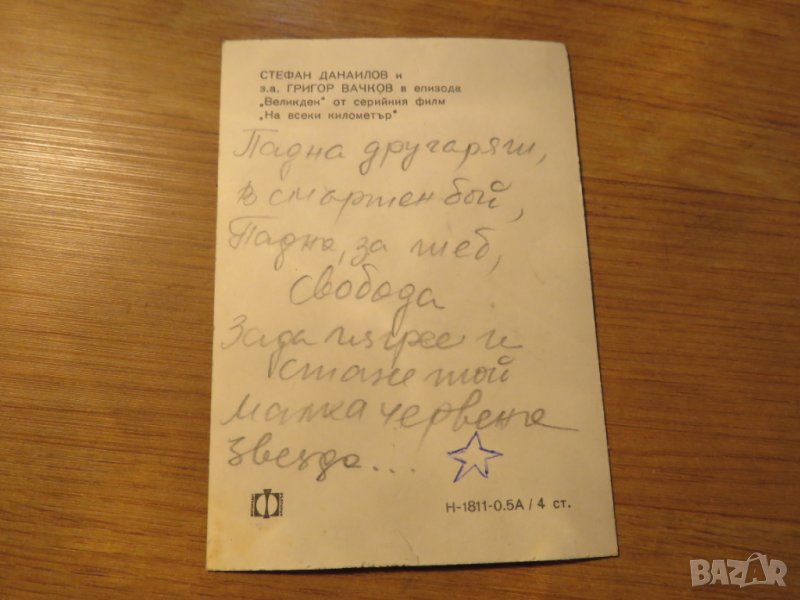 СТЕФАН ДАНАИЛОВ и
з.а. ГРИГОР ВАЧКОВ в епизода
„Великден" от серийния филм
„На всеки километър"
Падна другаряти,
в смъртен бой,
Падна, за теб,
свобода
За да изгрее и
стане той
малка червена
звезда...
Н-1811-0.5А / 4 ст.
BAZAR